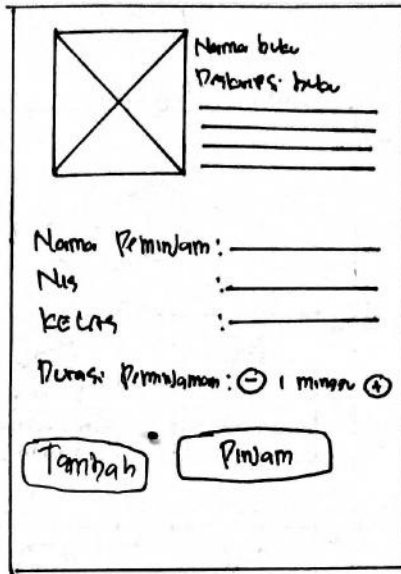 Nama buku
Deskripsi buku
Nama Peminjam :
NIS :
KELAS :
Durasi Peminjaman : - 1 minggu +
Tambah
Pinjam